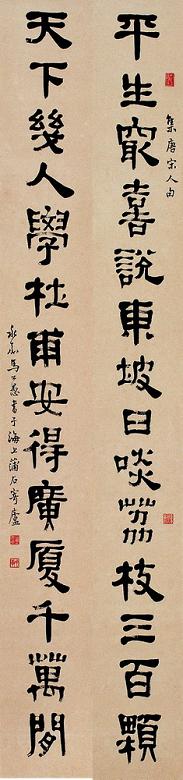 集唐宋人句
平生冣喜說東坡日啖荔枝三百顆
天下幾人學杜甫安得廣厦千萬間
永嘉馬公愚書于海上蒲石寄廬